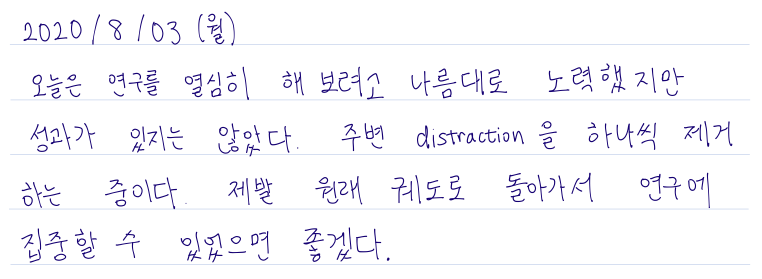 2020/8/03 (월)
오늘은 연구를 열심히 해 보려고 나름대로 노력했지만
성과가 있지는 않았다. 주변 distraction을 하나씩 제거
하는 중이다. 제발 원래 궤도로 돌아가서 연구에
집중할 수 있었으면 좋겠다.